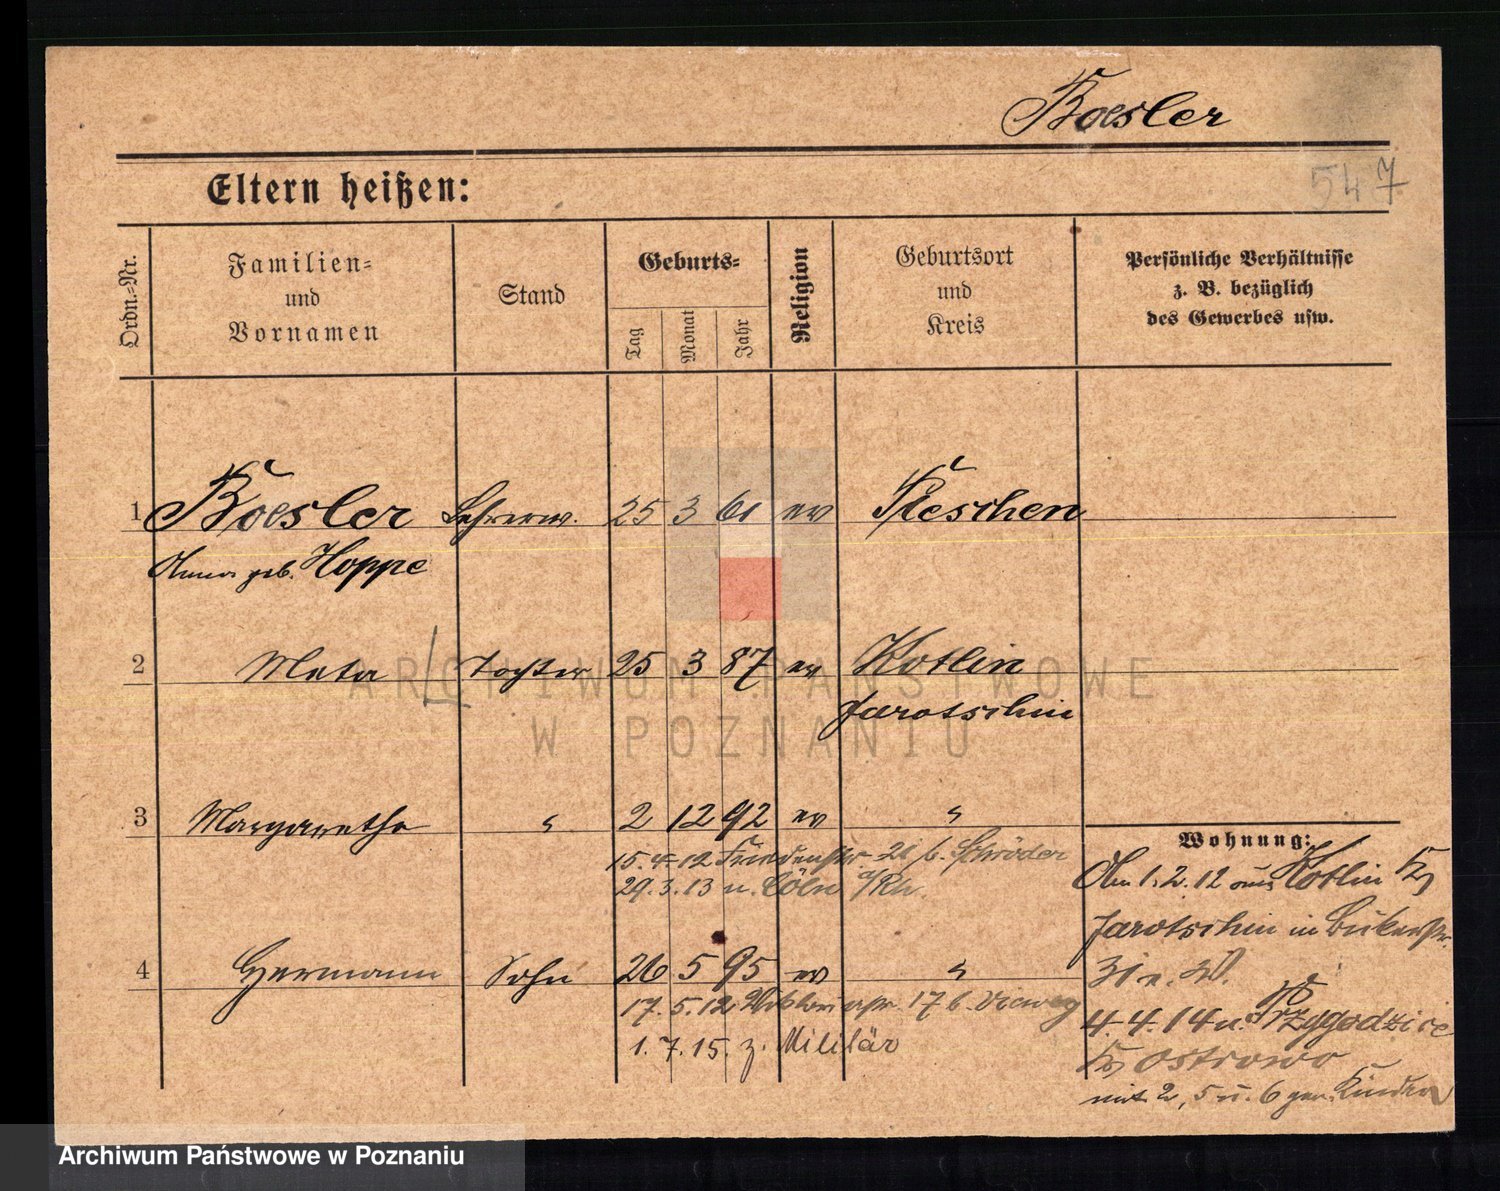 Boesler
547
Eltern heißen:
Ordn.-Nr.
Familien-
und
Vornamen
Stand
Geburts-
Tag
Monat
Jahr
Religion
Geburtsort
und
Kreis
Persönliche Verhältnisse
z. B. bezüglich
des Gewerbes usw.
1 Boesler Lehrerw. 25 3 61 ev Pleschen
Anna geb. Hoppe
2 Meta Tochter 25 3 87 ev Kotlin
Jarotschin
3 Margarethe " 2 12 92 ev "
15.4.12 Friedenstr 21 b. Schröder
29.3.13 n. Cöln a/Rh.
4 Hermann Sohn 26 5 95 ev "
17.5.12 17 b.
1.7.15. z. Militär
Wohnung:
Am 1.2.12 aus Kotlin Kr
Jarotschin in Bukerstr.
31
4.4.14 n. Przygodzice
Kr Ostrowo
mit 2, 5 u. 6 gen. Kinder
ARCHIWUM PAŃSTWOWE
W POZNANIU
Archiwum Państwowe w Poznaniu